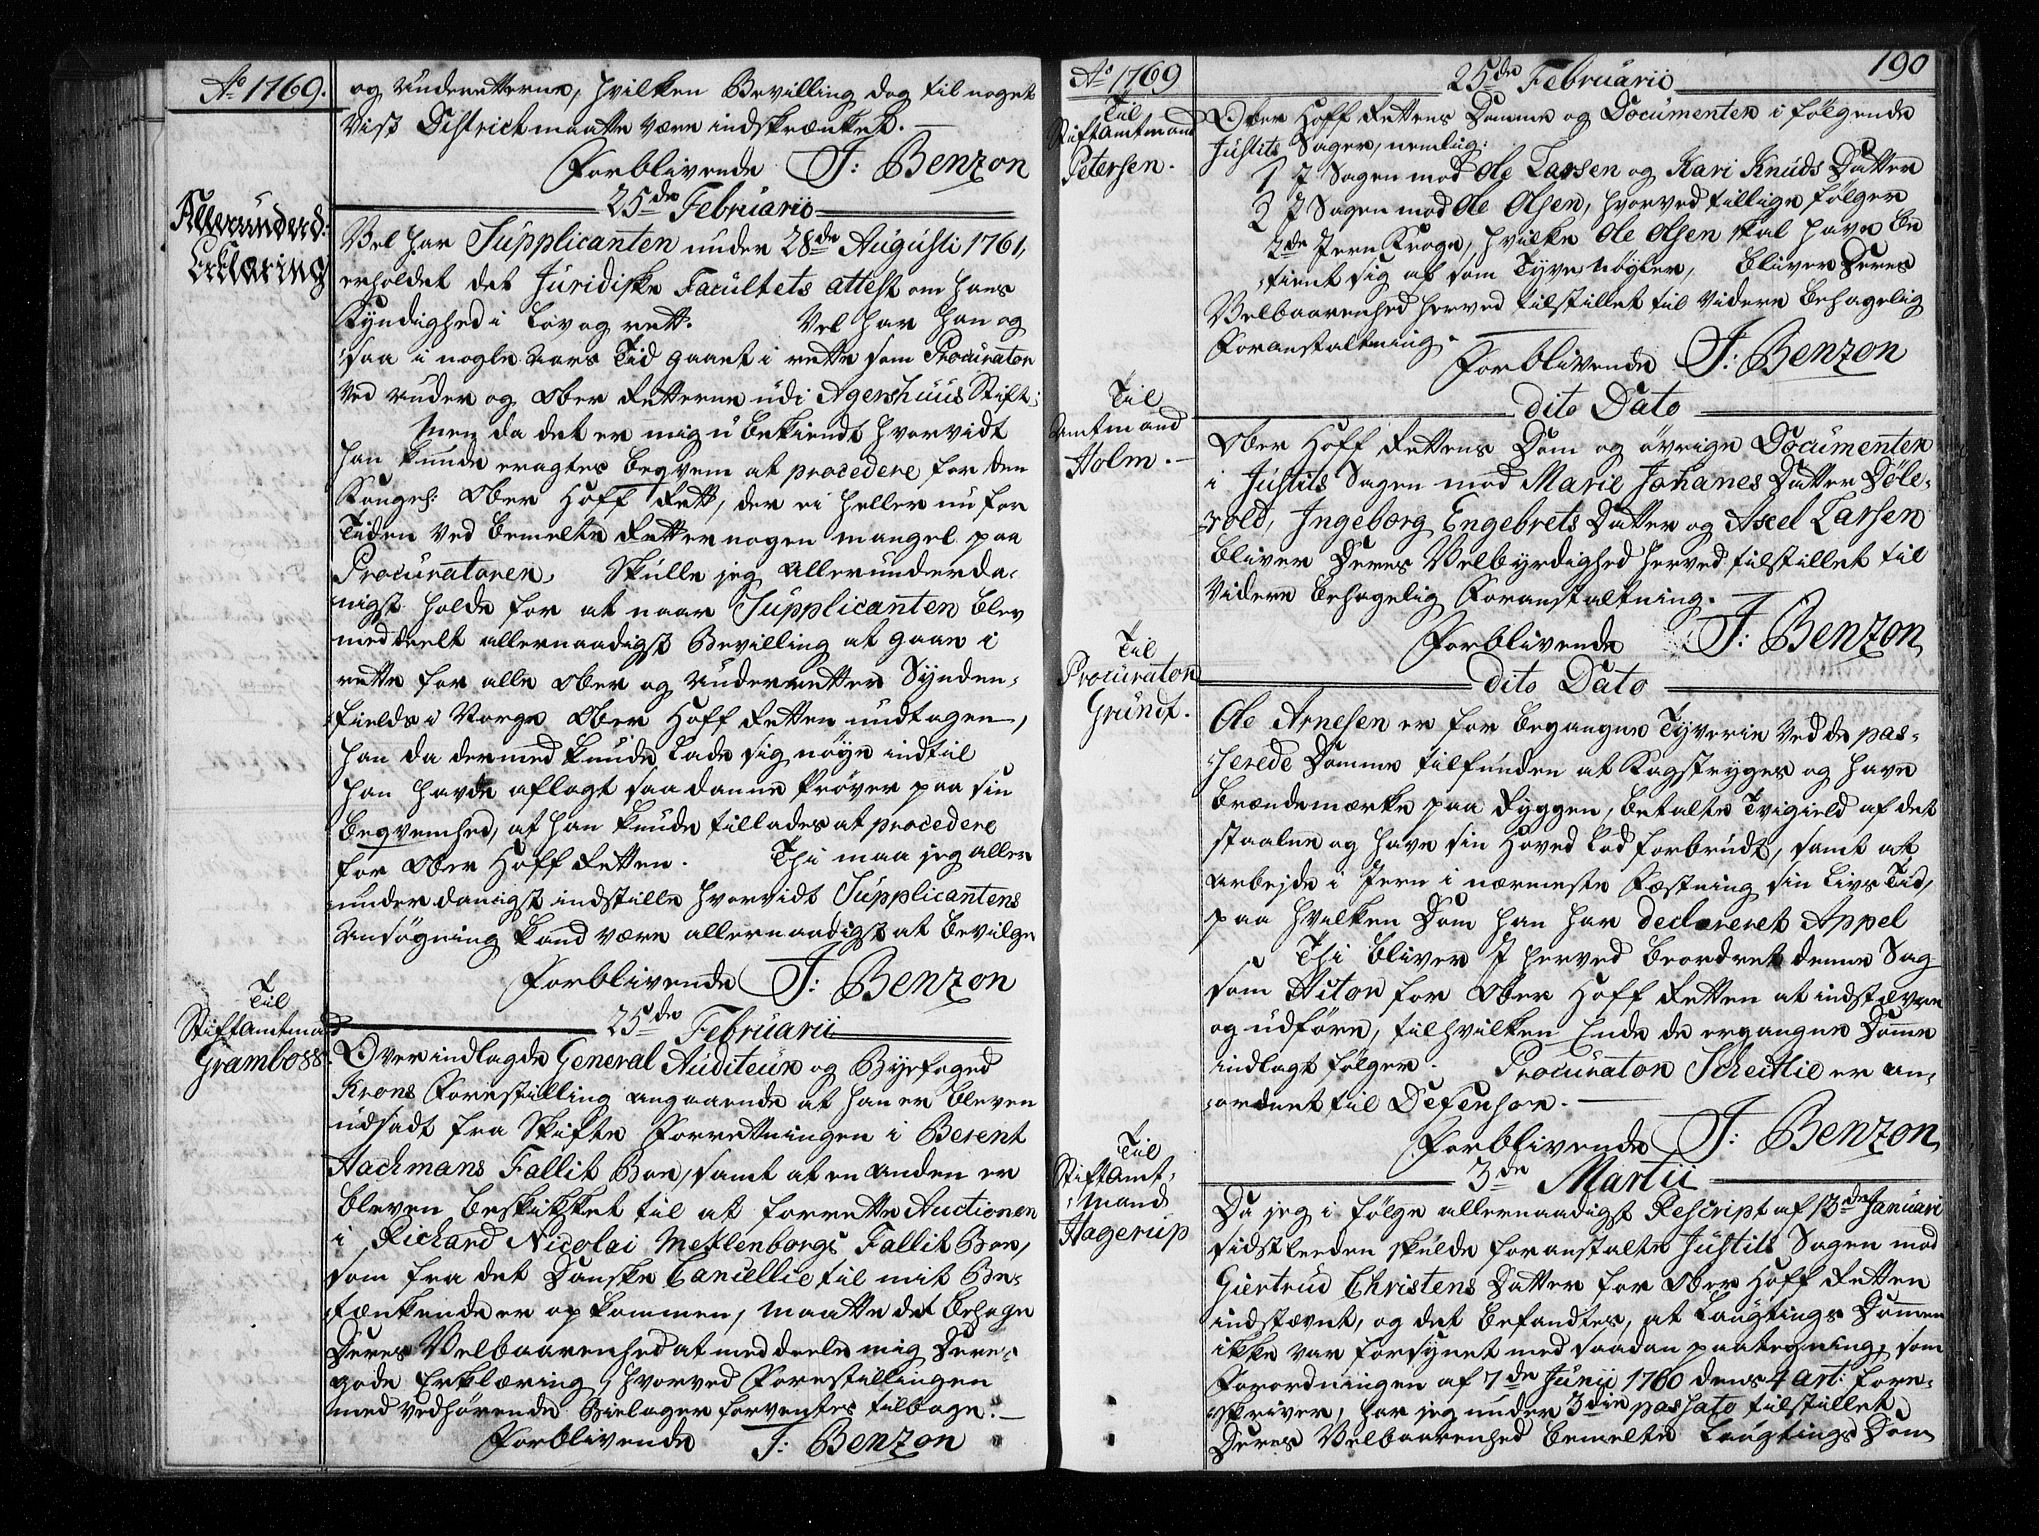 Ao 1769.
og underretterne, hvilken Bevilling dog til noget
vist District maatte være indskrænket. —
Forblivende J: Benzon
25de Februarii
Allerunderd:
Erklæring
Vel har Supplicanten under 28de Augusti 1761,
erholdet det Juridiske Facultets attest om hans
Kyndighed i Lov og rett. Vel har han og
saa i nogle aars Tid gaaet i rette som Procurator
ved under og Ober Retterne udi Agershuus Stift;
Men da det er mig ubekiendt hvorvidt
han kunde eragtes beqvem at procedere for den
Konges: Ober Hoff Rett, der ei heller nu for
Tiden ved bemelte Rett er nogen mangel paa
Procuratorer. Skulle jeg allerunderda-
nigst holde for at naar Supplicanten blev
meddeelt allernaadigst Bevilling at gaae i
rette for alle Ober og underretter Synden-
fields i Norge Ober Hoff Retten undtagen,
han da dermed kunde lade sig nøye indtil
han havde aflagt saadanne Prøver paa sin
beqvemhed, at han kunde tillades at procedere
for Ober Hoff Retten. Thi maa jeg aller
underdanigst indstille hvorvidt Supplicantens
Ansøgning kand være allernaadigst at bevilge
Forblivende J: Benzon
25de Februarii
Til
Stiftamtmand
Gramboss.
Over indlagde General Auditeur og Byefoged
Krons Forestilling angaaende at han er bleven
udsadt fra Skifte Forretningen i Berent
Hachmans Fallit Boe, samt at en anden er
bleven beskikket til at forrette Auctionen
i Richard Nicolai Meklenborgs Fallit Boe,
som fra det Danske Cancellie til mit Be-
tænkende er opkommen, maatte det behage
Deres Velbaarenhed at meddeele mig Deres
gode Erklæring, hvorved Forestillingen
med vedhørende Bielager forventes tilbage. —
Forblivende J: Benzon
Ao 1769
25de Februarii
190
Til
Stiftamtmand
Petersen.
Ober Hoff Rettens Domme og Documenter i følgende
Justits Sager, nemlig:
1 I Sagen mod Ole Larsen og Kari Knuds Datter
2 I Sagen mod Ole Olsen, hvorved tillige følger
2de Jern Kroge, hvilke Ole Olsen skal have be
tient sig af som Tyve Nøgler, bliver Deres
Velbaarenhed herved tilstillet til videre behagelig
Foranstaltning. —
Forblivende J: Benzon
dito Dato
Til
Amtmand
Holm. —
Ober Hoff Rettens Dom og øvrige Documenter
i Justits Sagen mod Marie Johanes Datter Døle-
vold, Ingeborg Engebrets Datter og Axel Larsen
bliver Deres Velbyrdighed herved tilstillet til
videre behagelig Foranstaltning. —
Forblivende J: Benzon
dito Dato
Til
Procurator
Grundt.
Ole Arnesen er for begangne Tyverie ved de pas-
serede Domme tilfunden at Kagstryges og have
brændemærke paa Ryggen, betalte Tvigield af det
staalne og have sin Hoved Lod forbrudt, samt at
arbejde i Jern i nærmeste Fæstning sin Livs Tid,
paa hvilken Dom han har declareret Appel
Thi bliver I herved beordret denne Sag
som Actor for Ober Hoff Retten at indstævne
og udføre, til hvilken Ende de ergangne Domme
indlagt følger. Procurator Scheitlie er an-
ordnet til Defensor. —
Forblivende J: Benzon
3de Martii
Til
Stiftamt-
mand
Hagerup
Da jeg i følge allernaadigst Rescript af 13de Januari
sidstleeden skulde foranstalte Justits Sagen mod
Giertrud Christens Datter for Ober Hoff Retten
indstævnt, og det befandtes, at Laugtings Dommen
ikke var forsynet med saadan paategning, som
Forordningen af 7de Junii 1760 dens 4 art: fore-
skriver, har jeg under 3die passato tilstillet
Deres Velbaarenhed bemelte Laugtings Dom